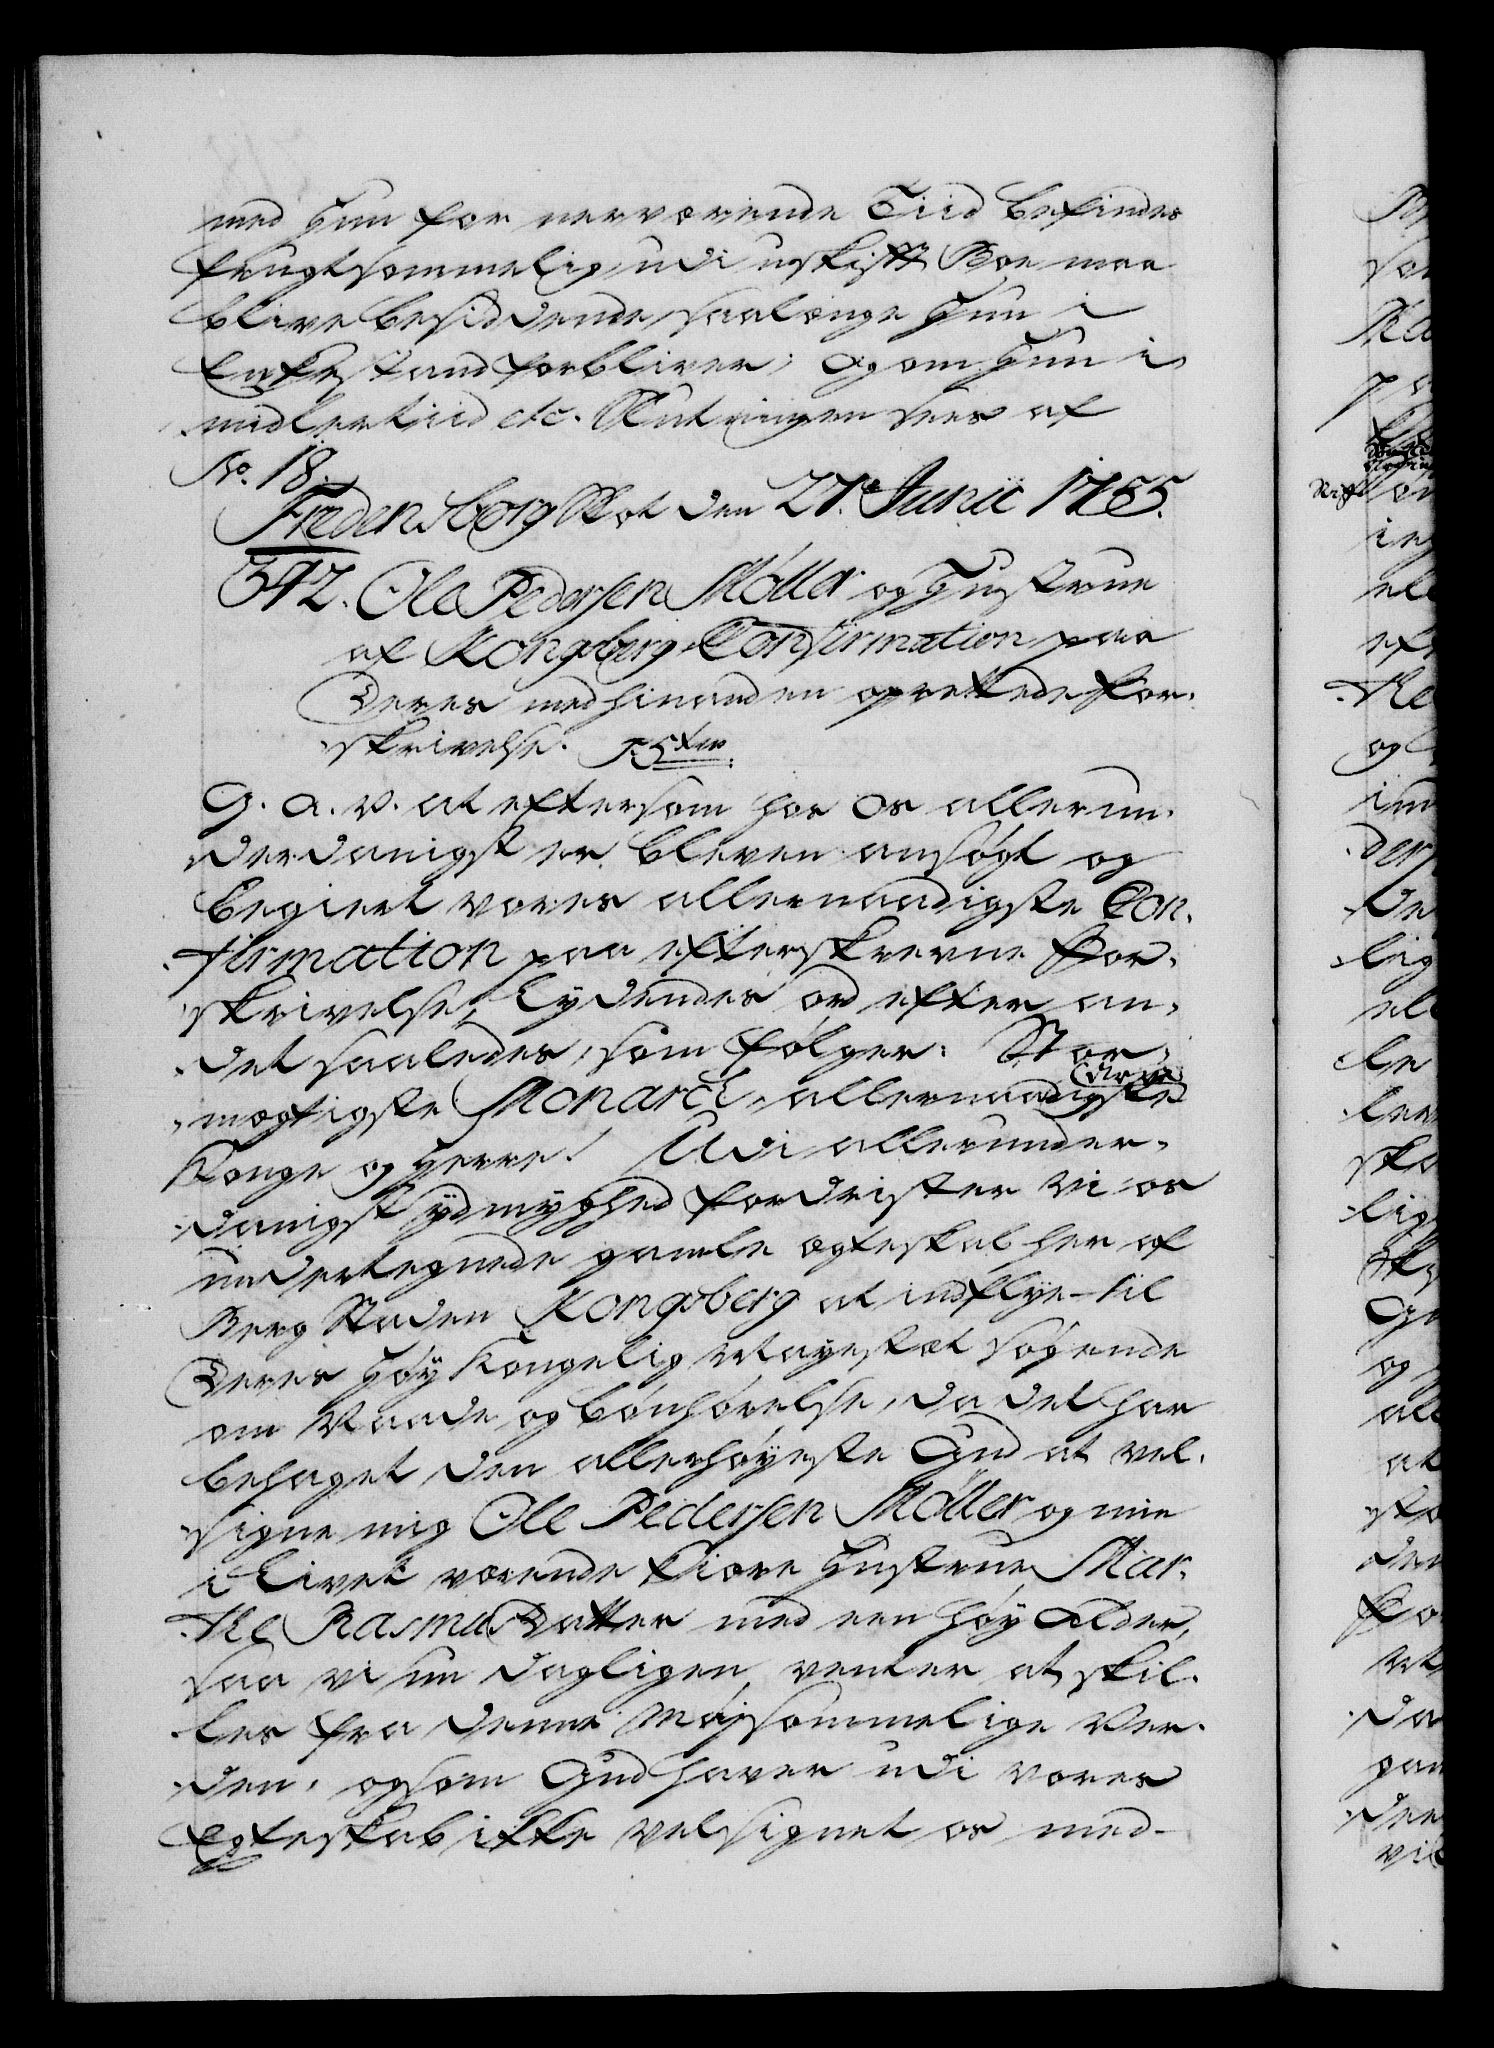 med Hun for nerværende Tiid befindes
frugtsommelig, udi uskifft Boe maa
blive besiddende, saalænge Hun i
Enkestand forbliver; og om Hun i
midlertiid etc. Slutningen sees af
No. 18.
Fredensborg Slot den 27de Junii 1755.
342. Ole Pedersen Möller og Hustrue
af Kongsberg Confirmation paa
Deres med hinanden oprettede for-
skrivelse.
G. a. v. at eftersom hos os allerun-
derdanigst er bleven ansøgt og
begiert vores allernaadigste Con-
firmation paa efterskrevne For-
skrivelse, lydendes ord efter an-
det saaledes, som følger: Stor-
mægtigste Monarch, allernaadigste
Konge og Herre! Udi allerunder-
danigst ydmyghed fordrister vi os
undertegnede gamle ægteskab her af
Berg Staden Kongsberg at indflye til
Deres Høy Kongelig Mayestæt søgende
om Naade og bønhørelse, da det har
behaget den allerhøyeste Gud at vel-
signe mig Ole Pedersen Möller og min
i Livet værende kiære Hustrue Mar-
the Rasmusdatter med een høy alder,
saa vi nu dagligen venter at skil-
les fra denne møjsommelige Ver-
den, og som Gud haver udi vores
Egteskab ikke velsignet os med